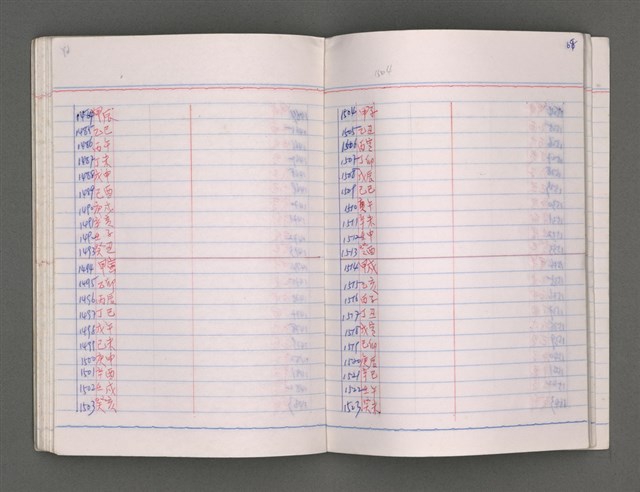 1484 甲辰
1485 乙巳
1486 丙午
1487 丁未
1488 戊申
1489 己酉
1490 庚戌
1491 辛亥
1492 壬子
1493 癸丑
1494 甲寅
1495 乙卯
1496 丙辰
1497 丁巳
1498 戊午
1499 己未
1500 庚申
1501 辛酉
1502 壬戌
1503 癸亥
68
1504
1504 甲子
1505 乙丑
1506 丙寅
1507 丁卯
1508 戊辰
1509 己巳
1510 庚午
1511 辛未
1512 壬申
1513 癸酉
1514 甲戌
1515 乙亥
1516 丙子
1517 丁丑
1518 戊寅
1519 己卯
1520 庚辰
1521 辛巳
1522 壬午
1523 癸未